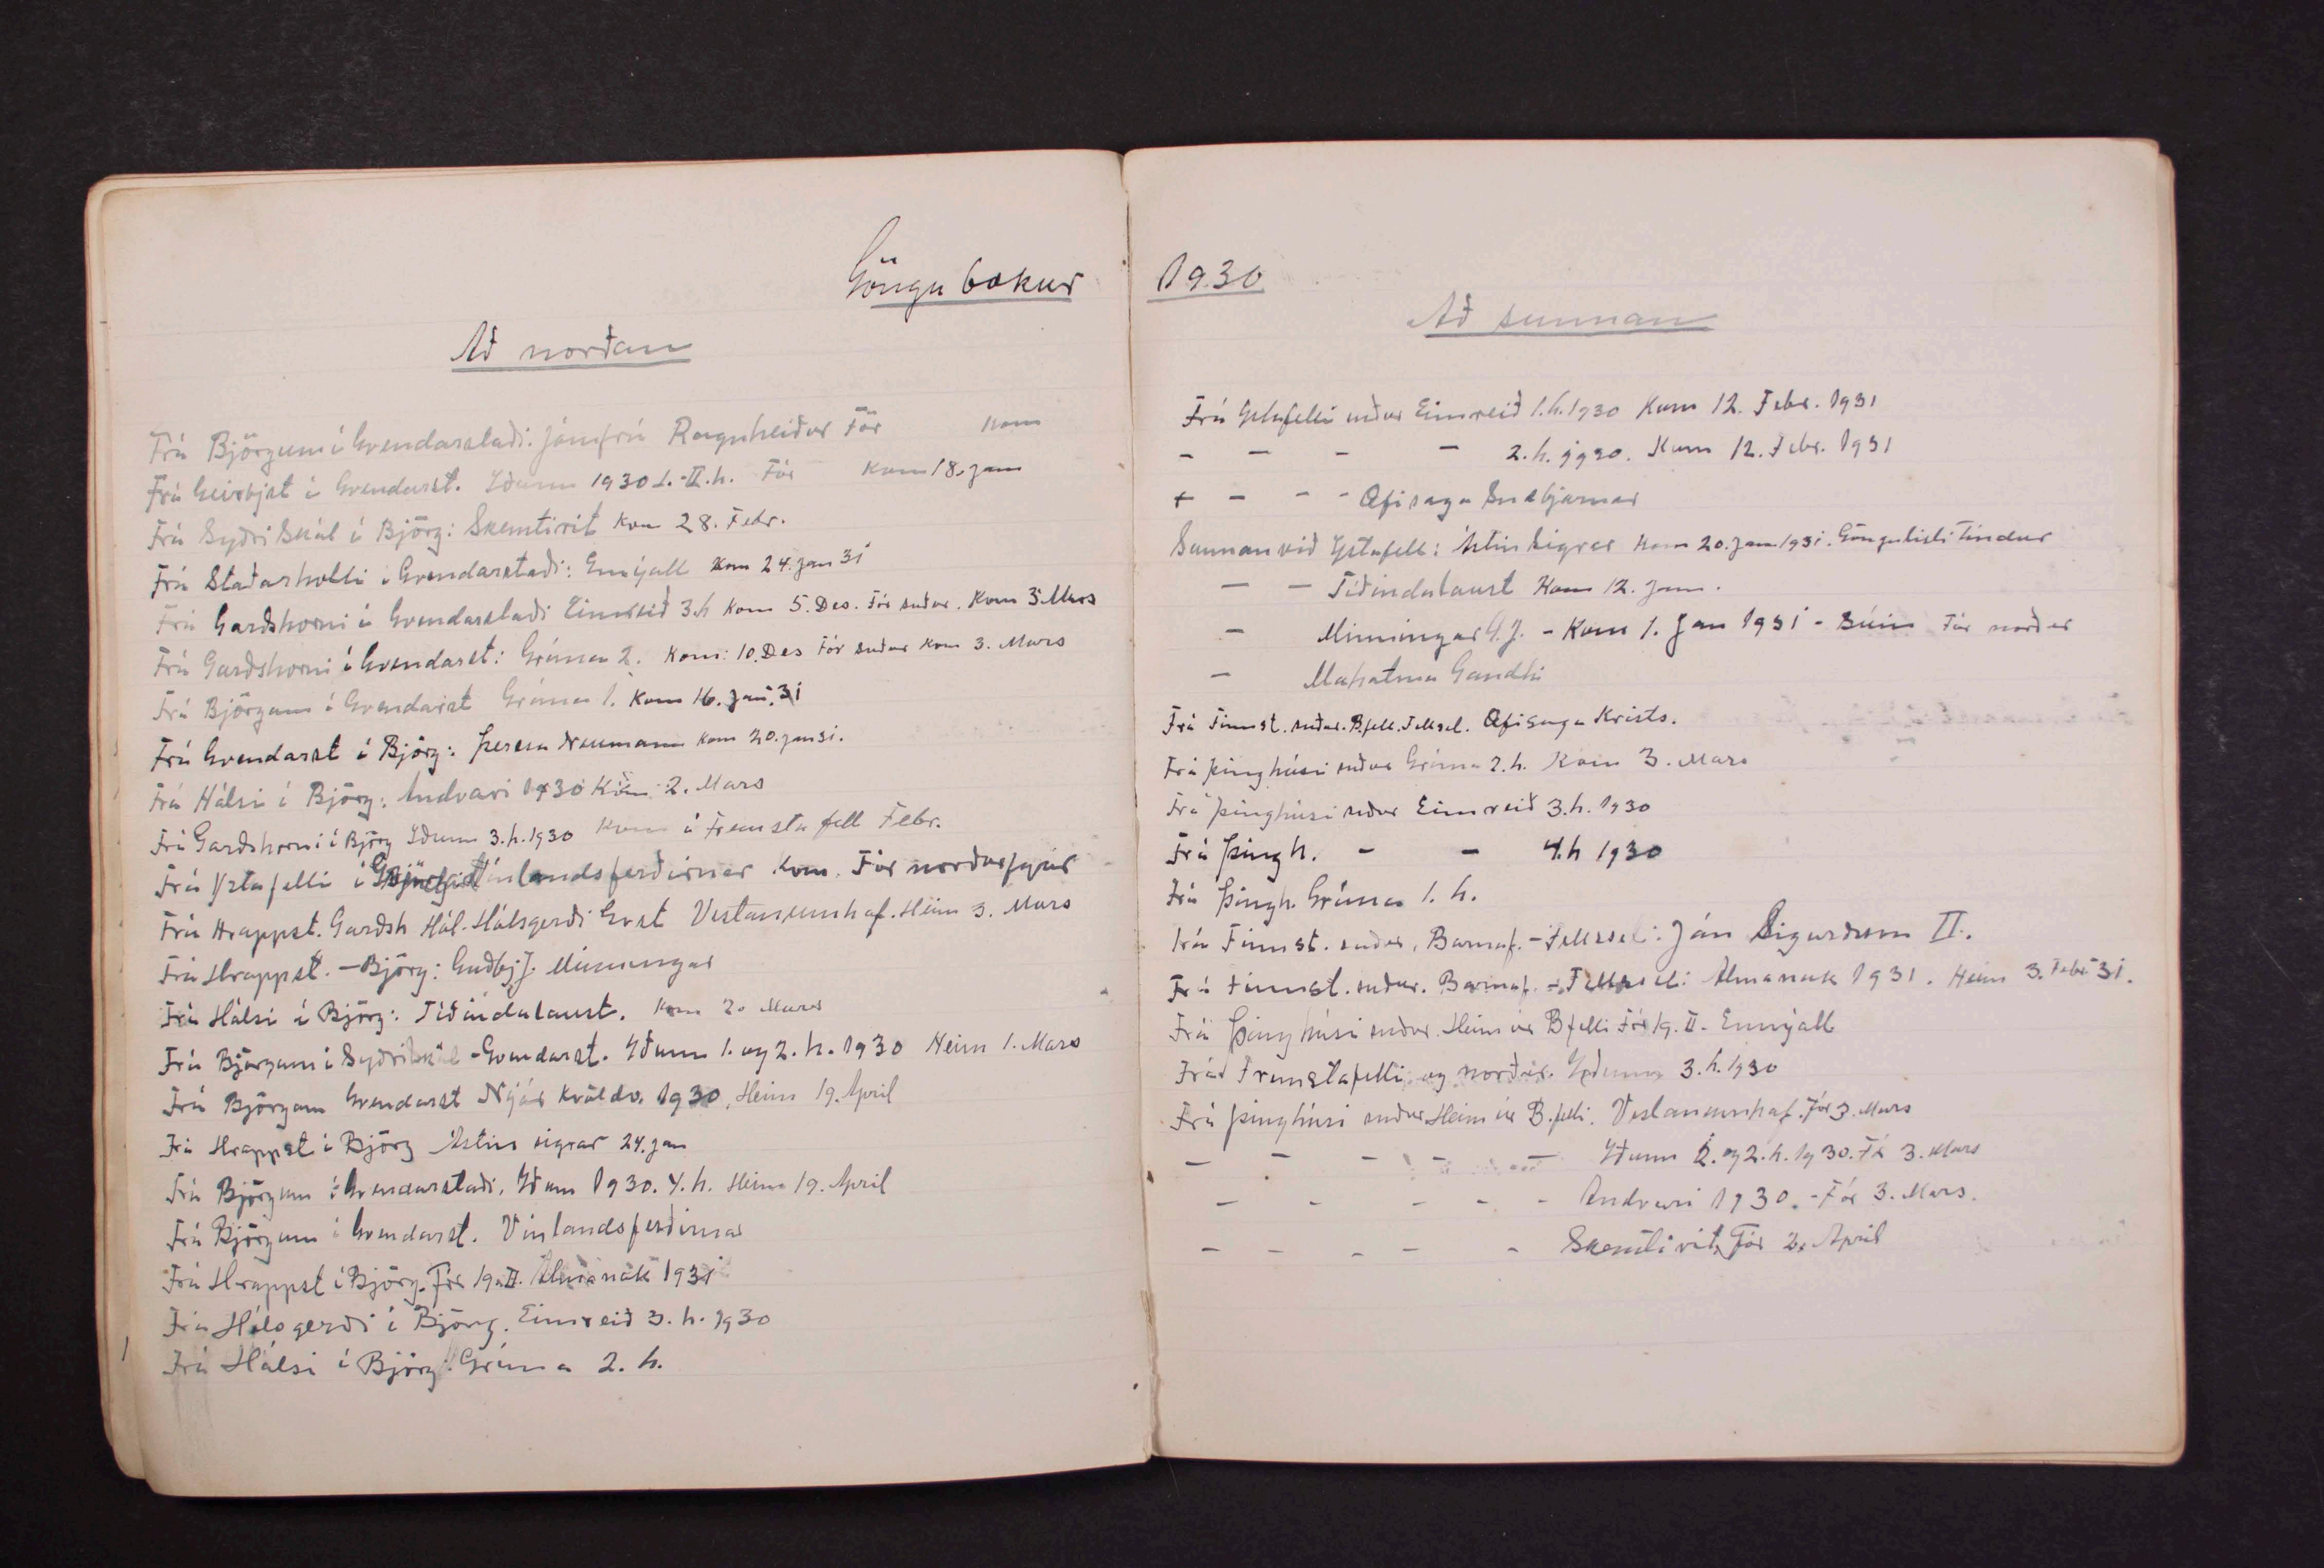 Göngubækur
Að norðan
Frá Björgum í Gvendarstaði: Jómfrú Ragnheiður Fór kom
Frá Geirbjst í Gvendarst. Iðunn 1930 I.-II.h. Fór kom 18. jan
Frá Syðri Skál í Björg: Skemtirit kom 28. Febr.
Frá Staðarholti í Gvendarstaði: Ennýall kom 24. jan 31
Frá Garðshorni í Gvendarstaði Eimreið 3.h kom 5. Des. Fór suður. Kom 3 Mars
Frá Garðshorni í Gvendarst: Gríma 2. kom: 10. Des Fór suður kom 3. Mars
Frá Björgum í Gvendarst Gríma 1. kom 16. Jan. 31
Frá Gvendarst í Björg: Þeresa Neumann kom 20. jan 31.
Frá Hálsi í Björg: Andvari 1930 Kom 2. Mars
Frá Garðshorni í Björg Iðunn 3.h. 1930 kom í Fremstafell Febr.
Frá Ystafelli í Vínlandsferðirnar kom. Fór norðurfyrir
Frá Hrappst. Garðsh Hál. Hálsgerði Gvst Vestanumhaf. Heim 3. Mars
Frá Hrappst. - Björg: Guðbj J. Minningar
Frá Hálsi í Björg: Tíðindalaust. kom 20 Mars
Frá Björgum í Syðriskál - Gvendarst. Iðunn 1. og 2. h. 1930 Heim 1. Mars
Frá Björgum Gvendarst Nýjar kvöldv. 1930, Heim 19. Apríl
Frá Hrappst í Björg Ástin sigrar 24. jan
Frá Björgum í Gvendarstaði, Iðunn 1930. 4. h. Heim 19. Apríl
Frá Björgum í Gvendarst. Vínlandsferðirnar
Frá Hrappst í Björg. Fór 19. II. Almanak 1931
Frá Hálsgerði í Björg. Eimreið 3. h. 1930
Frá Hálsi í Björg: Gríma 2. h.
1930
Að sunnan
Frá Ystafelli suður Eimreið 1.h. 1930 Kom 12. Febr. 1931
- - - - 2. h. 1930. Kom 12. Febr. 1931
+ - - - Æfisaga Snæbjarnar
Sunnan við Ystafell: Ástin sigrar kom 20. jan 1931. Göngulisti Tíndur
- - Tíðindalaust Kom 12. Jan.
- Minningar G.J. - Kom 1. Jan 1931 - Búin Fór norður
- Mahatma Gandhi
Frá Finnst. suður. B.fell. Fellsel. Æfisaga Krists.
Frá þinghúsi suður Gríma 2.h. Kom 3. Mars
Frá þinghúsi suður Eimreið 3.h. 1930
Frá þingh. - - 4.h 1930
Frá þingh. Gríma 1. h.
Frá Finnst. suður. Barnaf. - Fellseli: Ján Sigurðsson II.
Frá Finnst. suður. Barnaf. - Fellseli: Almanak 1931. Heim 3. Febr 31.
Frá Þinghúsi suður. Heim úr B.felli Fór 19. II - Ennýall
Frá Fremstafelli og norður. Iðunn 3. h. 1930
Frá þinghúsi suður Heim úr B.felli. Vestanumhaf. Fór 3. Mars
- - - - - Iðunn 1. og 2. h. 1930. Fór 3. Mars
- - - - - Andvari 1930. - Fór 3. Mars.
- - - - - Skemtirit, Fór 2. Apríl